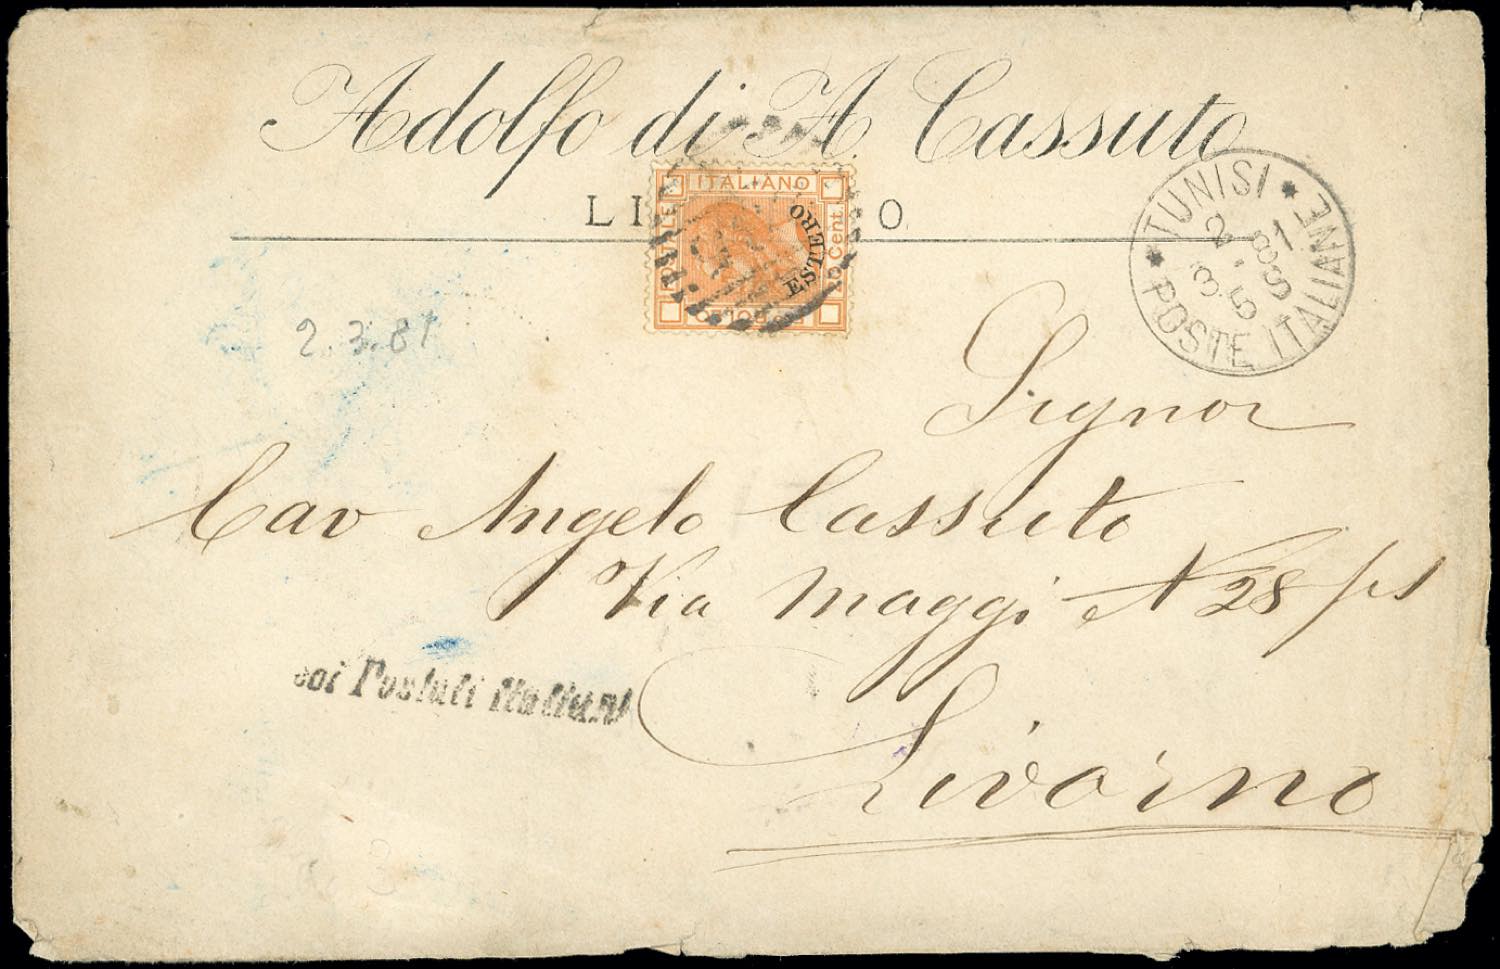 Adolfo di A Cassuto
LI O
ITALIANO
POSTALE
ESTERO
Cent.
BOLLO
TUNISI
POSTE ITALIANE
2 . 3 . 81
Signor
Cav Angelo Cassuto
Via Maggi N 28
coi Postali Italiani
Livorno
3